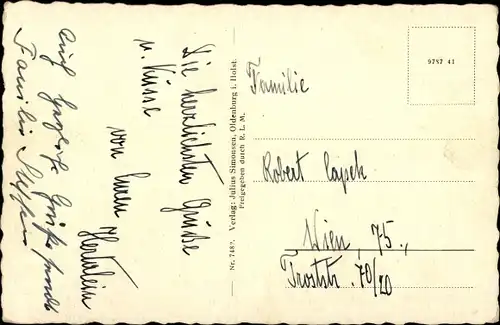 Die herzlichsten Grüße
u. Küsse
von Euren
Auch herzliche Grüße sendet
Familie
Nr. 7482. Verlag: Julius Simonsen, Oldenburg i. Holst.
Freigegeben durch R. L. M.
9787 41
Familie
Robert Capek
Wien, 75.,
Troststr. 70/20